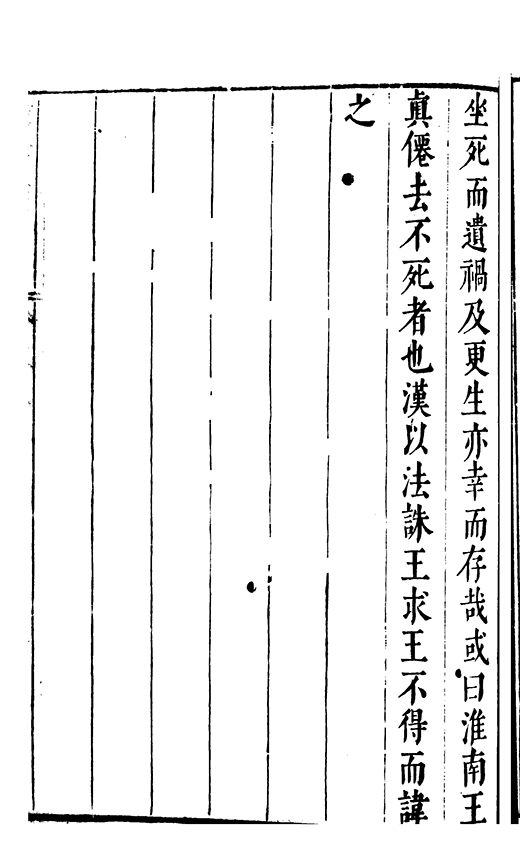 坐死而遺禍及更生亦幸而存哉或曰淮南王
真僊去不死者也漢以法誅王求王不得而諱
之